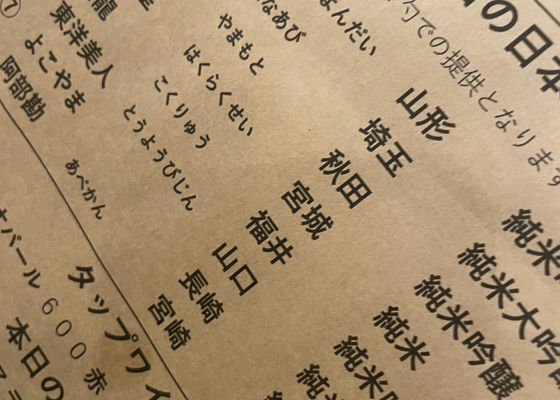 の日本
勺での提供となります
よんだい 山形 純米
なあび 埼玉 純米大吟
やまもと 秋田 純米吟醸
はくらくせい 宮城 純米
龍 こくりゅう 福井 純米吟
東洋美人 とうようびじん 山口 純米
よこやま 長崎
阿部勘 あべかん 宮崎
タップワイ
バール 600 赤
本日の